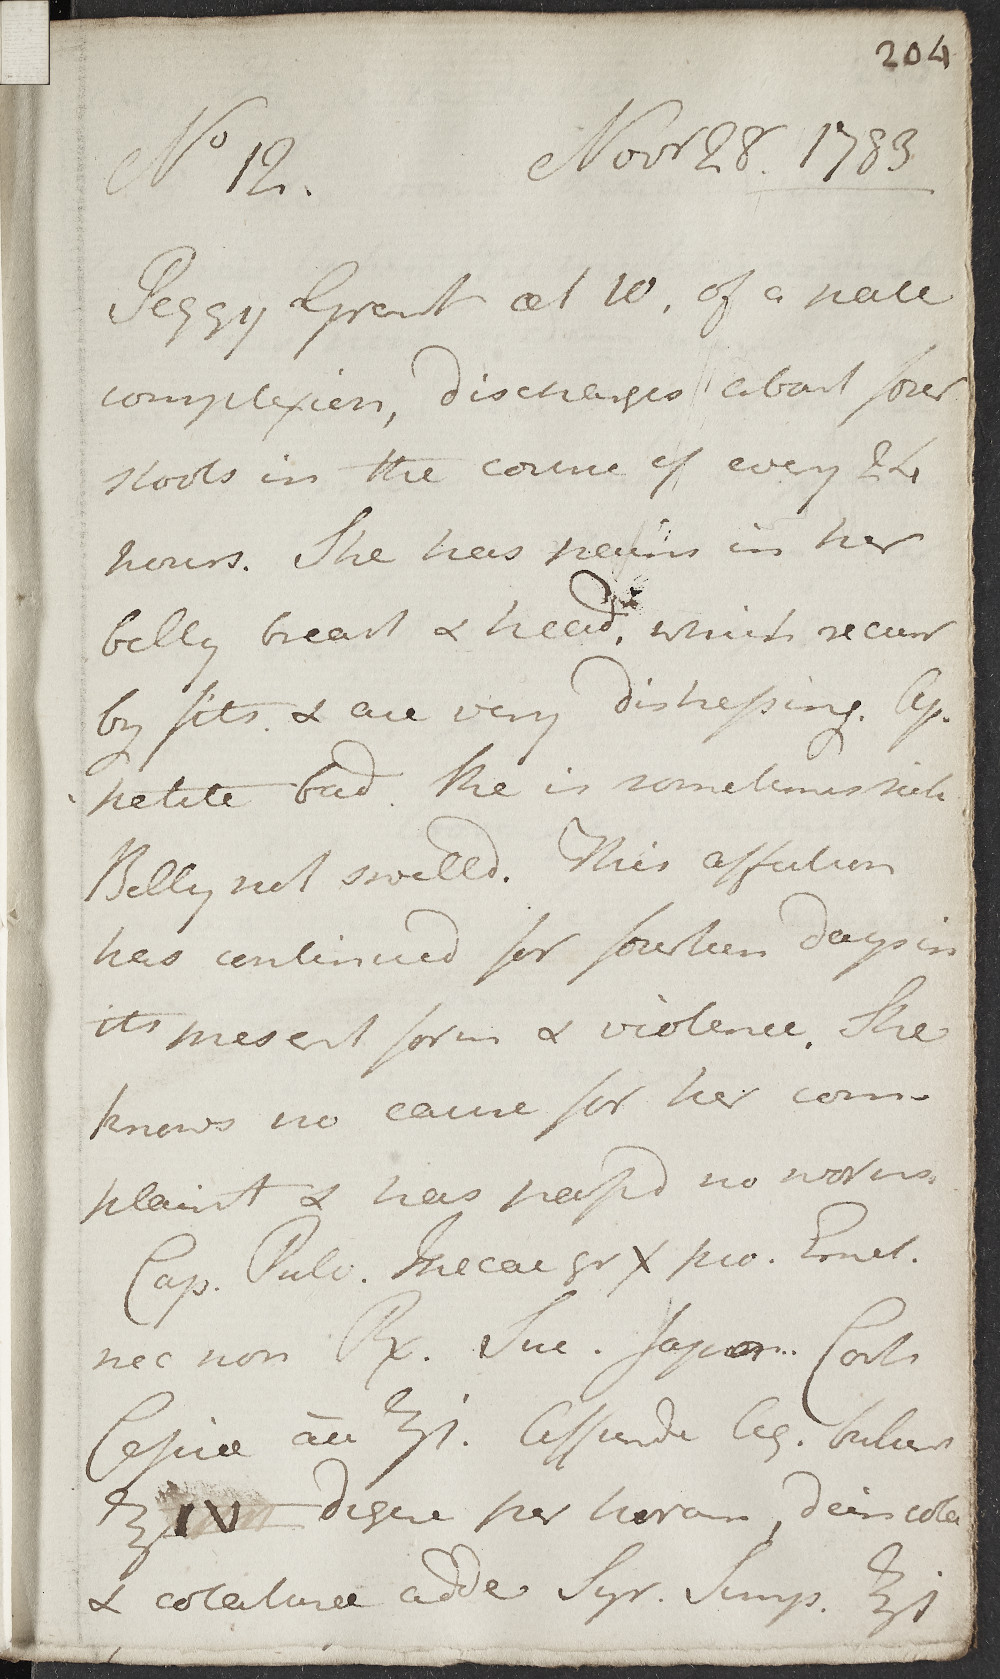 204
No 12. Novr 28. 1783
Peggy Grant æt 10. of a pale
complexion, discharges about four
stools in the course of every 24
hours. She has pains in her
belly breast & head, which recurr
by fits & are very distressing. Ap-
petite bad. She is sometimes sick
Belly not swelld. This affection
has continued for fourteen days in
its present form & violence. She
knows no cause for her com-
plaint & has passd no worms.
Cap. Pulv. Ipecac gr X pro. Emet.
nec non Rx. Suc. Japon. Cort
Cassiæ āā ʒj. Affunde Aq. bulient
℥IV digere per horam, dein cola
& colaturæ adde Syr. Simp. ℥j